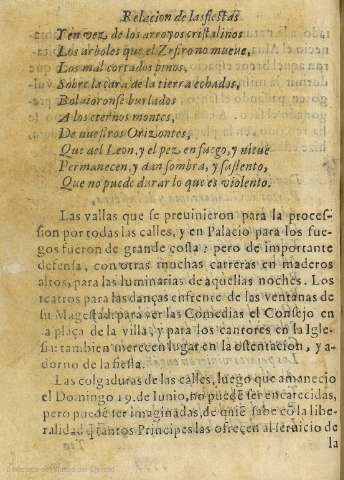 Relacion de las fiestas
Y en vez de los arroyos cristalinos
Los arboles que el Zefiro no mueue,
Los mal cortados pinos,
Sobre la cara de la tierra echados,
Boluieronse burlados
A los eternos montes,
De nuestros Orizontes,
Que del Leon, y el pez en fuego, y nieue
Permanecen, y dan sombra, y sustento,
Que no puede durar lo que es violento.
Las vallas que se preuinieron para la proces-
sion por todas las calles, y en Palacio para los fue-
gos fueron de grande costa: pero de importante
defensa, con otras muchas carreras en maderos
altos, para las luminarias de aquellas noches. Los
teatros para las danças enfrente de las ventanas de
su Magestad: para ver las Comedias el Consejo en
la plaça de la villa, y para los cantores en la Igle-
sia: tambien merecen lugar en la ostentacion, y a-
dorno de la fiesta.
Las colgaduras de las calles, luego que amanecio
el Domingo 19. de Iunio, no puede ser encarecidas,
pero puede ser imaginadas, de quiē sabe cō la libe-
ralidad q̄ tantos Principes las ofrecen al seruicio de
la